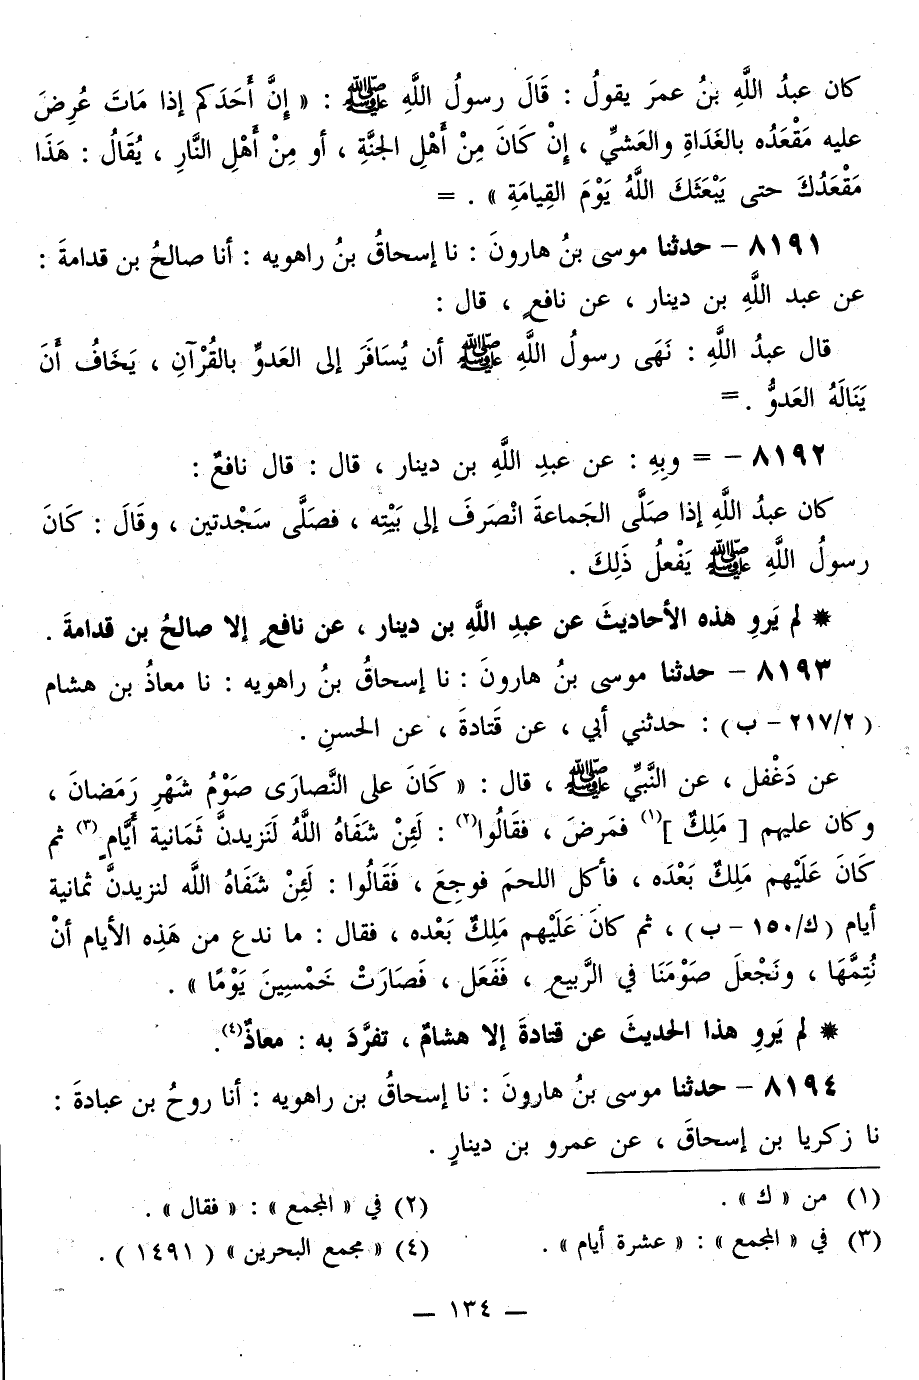 كان عبدُ اللَّهِ بنُ عمرَ يقولُ : قَالَ رسولُ اللَّهِ ﷺ : « إِنَّ أَحَدَكم إذا مَاتَ عُرِضَ
عليه مَقْعَدُه بالغَدَاةِ والعَشيِّ ، إِنْ كَانَ مِنْ أَهْلِ الجنَّةِ ، أو مِنْ أَهْلِ النَّارِ ، يُقَالُ : هَذَا
مَقْعَدُكَ حتى يَبْعَثَكَ اللَّهُ يَوْمَ القِيامَةِ » . =
٨١٩١ – حدثنا موسى بنُ هارونَ : نا إسحاقُ بنُ راهويه : أنا صالحُ بن قدامةَ :
عن عبد اللَّهِ بن دينار ، عن نافعٍ ، قال :
قال عبدُ اللَّهِ : نَهَى رسولُ اللَّهِ ﷺ أن يُسَافَرَ إلى العَدوِّ بالقُرْآنِ ، يَخَافُ أَنَ
يَنَالَهُ العَدوُّ . =
٨١٩٢ – = وبِهِ : عن عبدِ اللَّهِ بن دينار ، قال : قال نافعٌ :
كان عبدُ اللَّهِ إذا صَلَّى الجَماعةَ انْصَرَفَ إلى بَيْتِه ، فصَلَّى سَجْدتين ، وقَالَ : كَانَ
رسولُ اللَّهِ ﷺ يَفْعلُ ذَلِكَ .
* لم يَروِ هذه الأحاديثَ عن عبدِ اللَّهِ بن دينار ، عن نافعٍ إلا صالحُ بن قدامةَ .
٨١٩٣ – حدثنا موسى بنُ هارونَ : نا إسحاقُ بنُ راهويه : نا معاذُ بن هشام
( ٢١٧/٢ – ب ) : حدثني أبي ، عن قَتادةَ ، عن الحسنِ .
عن دَغْفل ، عن النَّبيِّ ﷺ ، قال : « كَانَ على النَّصارَى صَوْمُ شَهْرِ رَمَضانَ ،
وكان عليهم [ مَلِكٌ ](١) فمَرضَ ، فقَالُوا(٢) : لَئِنْ شَفَاهُ اللَّهُ لَنَزيدنَّ ثَمَانية أَيَّامٍ(٣) ثم
كَانَ عَلَيْهم مَلِكٌ بَعْدَه ، فأكل اللحمَ فوجِعَ ، فَقَالُوا : لَئِنْ شَفَاهُ اللَّه لنزيدنَّ ثمانية
أيام ( ك/١٥٠ – ب ) ، ثم كانَ عَلَيْهم مَلِكٌ بَعْده ، فقال : ما ندع من هَذِه الأيام أنْ
نُتِمَّهَا ، ونَجْعلَ صَوْمَنَا في الرَّبيعِ ، فَفَعَل ، فَصَارَتْ خَمْسِينَ يَوْمًا » .
* لم يَروِ هذا الحديثَ عن قتادةَ إلا هشامٌ ، تفرَّدَ به : معاذٌ(٤).
٨١٩٤ – حدثنا موسى بنُ هارونَ : نا إسحاقُ بن راهويه : أنا روحُ بن عبادةَ :
نا زكريا بن إسحاقَ ، عن عمرو بن دينارٍ .
(١) من « ك » .
(٢) في « المجمع » : « فقال » .
(٣) في « المجمع » : « عشرة أيام » .
(٤) « مجمع البحرين » ( ١٤٩١ ) .
— ١٣٤ —